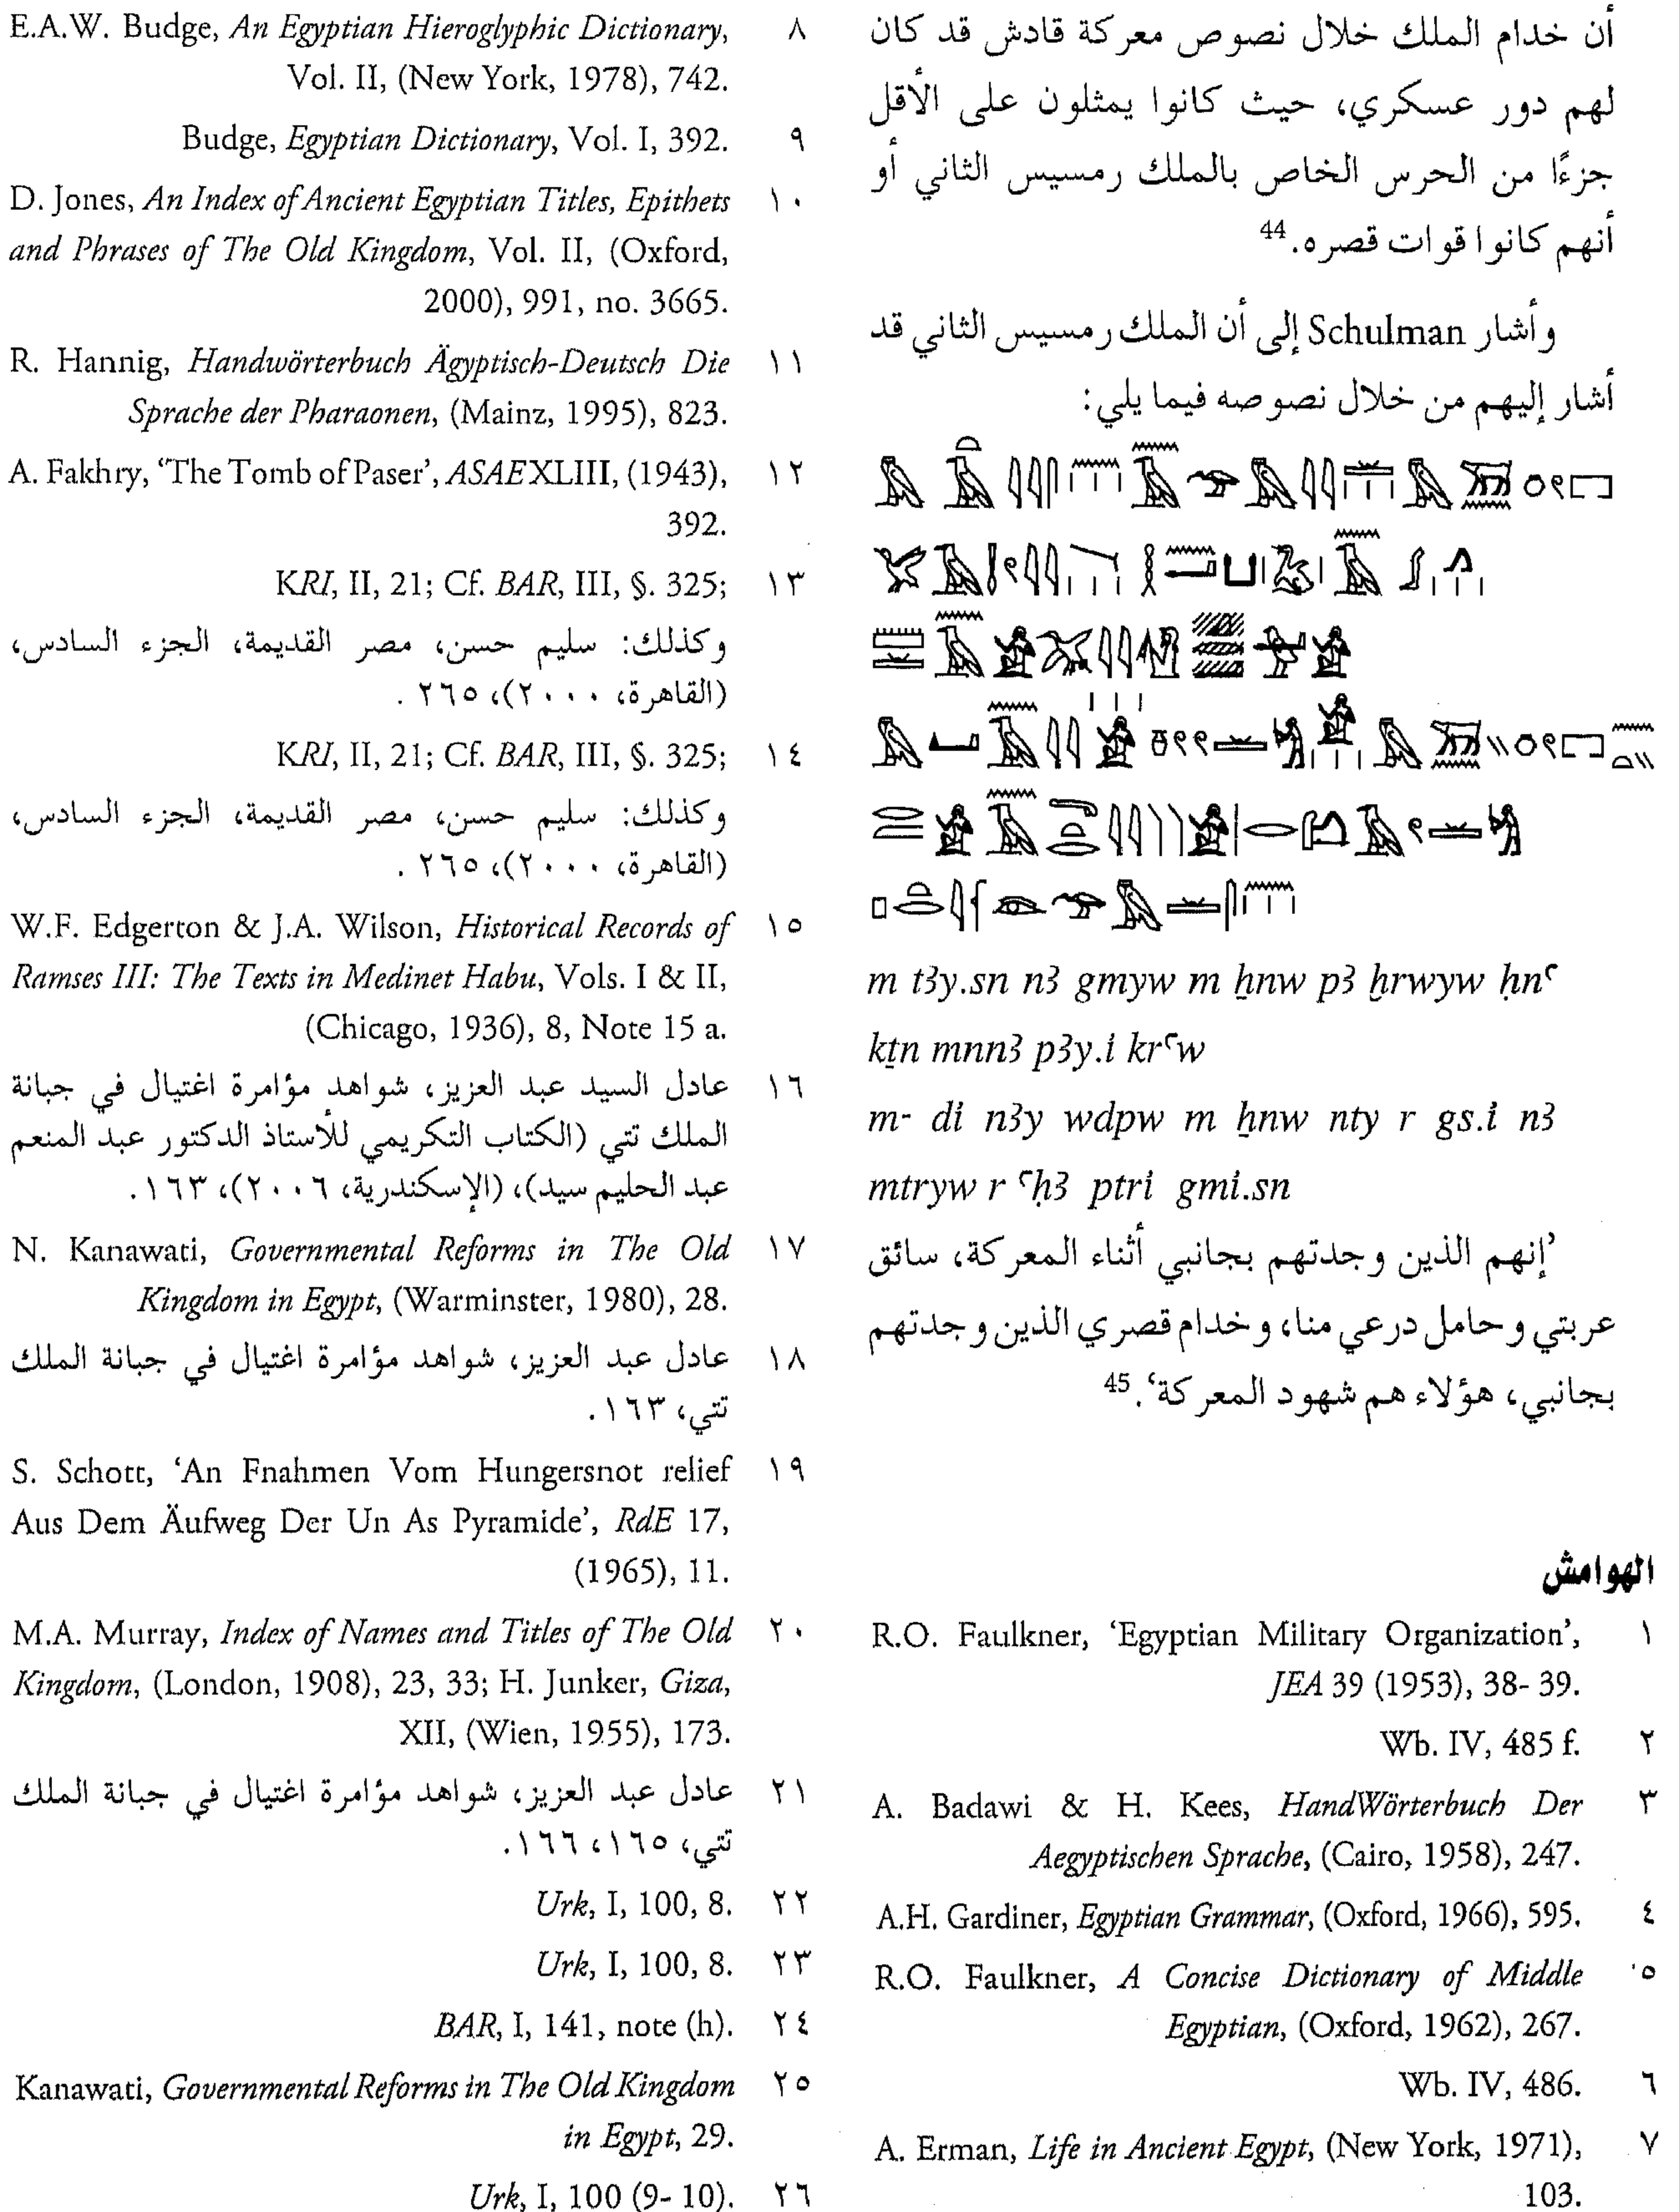 أن خدام الملك خلال نصوص معركة قادش قد كان
لهم دور عسكري، حيث كانوا يمثلون على الأقل
جزءًا من الحرس الخاص بالملك رمسيس الثاني أو
أنهم كانوا قوات قصره.44
وأشار Schulman إلى أن الملك رمسيس الثاني قد
أشار إليهم من خلال نصوصه فيما يلي:
m tꜣy.sn nꜣ gmyw m ẖnw pꜣ ḫrwyw ḥnꜥ
kṯn mnnꜣ pꜣy.i krꜥw
m- di nꜣy wdpw m ẖnw nty r gs.i nꜣ
mtryw r ꜥḥꜣ ptri gmi.sn
’إنهم الذين وجدتهم بجانبي أثناء المعركة، سائق
عربتي وحامل درعي منا، وخدام قصري الذين وجدتهم
بجانبي، هؤلاء هم شهود المعركة‘.45
الهوامش
١ R.O. Faulkner, ‘Egyptian Military Organization’,
JEA 39 (1953), 38- 39.
٢ Wb. IV, 485 f.
٣ A. Badawi & H. Kees, HandWörterbuch Der
Aegyptischen Sprache, (Cairo, 1958), 247.
٤ A.H. Gardiner, Egyptian Grammar, (Oxford, 1966), 595.
٥ R.O. Faulkner, A Concise Dictionary of Middle
Egyptian, (Oxford, 1962), 267.
٦ Wb. IV, 486.
٧ A. Erman, Life in Ancient Egypt, (New York, 1971),
103.
٨ E.A.W. Budge, An Egyptian Hieroglyphic Dictionary,
Vol. II, (New York, 1978), 742.
٩ Budge, Egyptian Dictionary, Vol. I, 392.
١٠ D. Jones, An Index of Ancient Egyptian Titles, Epithets
and Phrases of The Old Kingdom, Vol. II, (Oxford,
2000), 991, no. 3665.
١١ R. Hannig, Handwörterbuch Ägyptisch-Deutsch Die
Sprache der Pharaonen, (Mainz, 1995), 823.
١٢ A. Fakhry, ‘The Tomb of Paser’, ASAE XLIII, (1943),
392.
١٣ KRI, II, 21; Cf. BAR, III, §. 325;
وكذلك: سليم حسن، مصر القديمة، الجزء السادس،
(القاهرة، ٢٠٠٠)، ٢٦٥.
١٤ KRI, II, 21; Cf. BAR, III, §. 325;
وكذلك: سليم حسن، مصر القديمة، الجزء السادس،
(القاهرة، ٢٠٠٠)، ٢٦٥.
١٥ W.F. Edgerton & J.A. Wilson, Historical Records of
Ramses III: The Texts in Medinet Habu, Vols. I & II,
(Chicago, 1936), 8, Note 15 a.
١٦ عادل السيد عبد العزيز، شواهد مؤامرة اغتيال في جبانة
الملك تتي (الكتاب التكريمي للأستاذ الدكتور عبد المنعم
عبد الحليم سيد)، (الإسكندرية، ٢٠٠٦)، ١٦٣.
١٧ N. Kanawati, Governmental Reforms in The Old
Kingdom in Egypt, (Warminster, 1980), 28.
١٨ عادل عبد العزيز، شواهد مؤامرة اغتيال في جبانة الملك
تتي، ١٦٣.
١٩ S. Schott, ‘An Fnahmen Vom Hungersnot relief
Aus Dem Äufweg Der Un As Pyramide’, RdE 17,
(1965), 11.
٢٠ M.A. Murray, Index of Names and Titles of The Old
Kingdom, (London, 1908), 23, 33; H. Junker, Giza,
XII, (Wien, 1955), 173.
٢١ عادل عبد العزيز، شواهد مؤامرة اغتيال في جبانة الملك
تتي، ١٦٥، ١٦٦.
٢٢ Urk, I, 100, 8.
٢٣ Urk, I, 100, 8.
٢٤ BAR, I, 141, note (h).
٢٥ Kanawati, Governmental Reforms in The Old Kingdom
in Egypt, 29.
٢٦ Urk, I, 100 (9- 10).